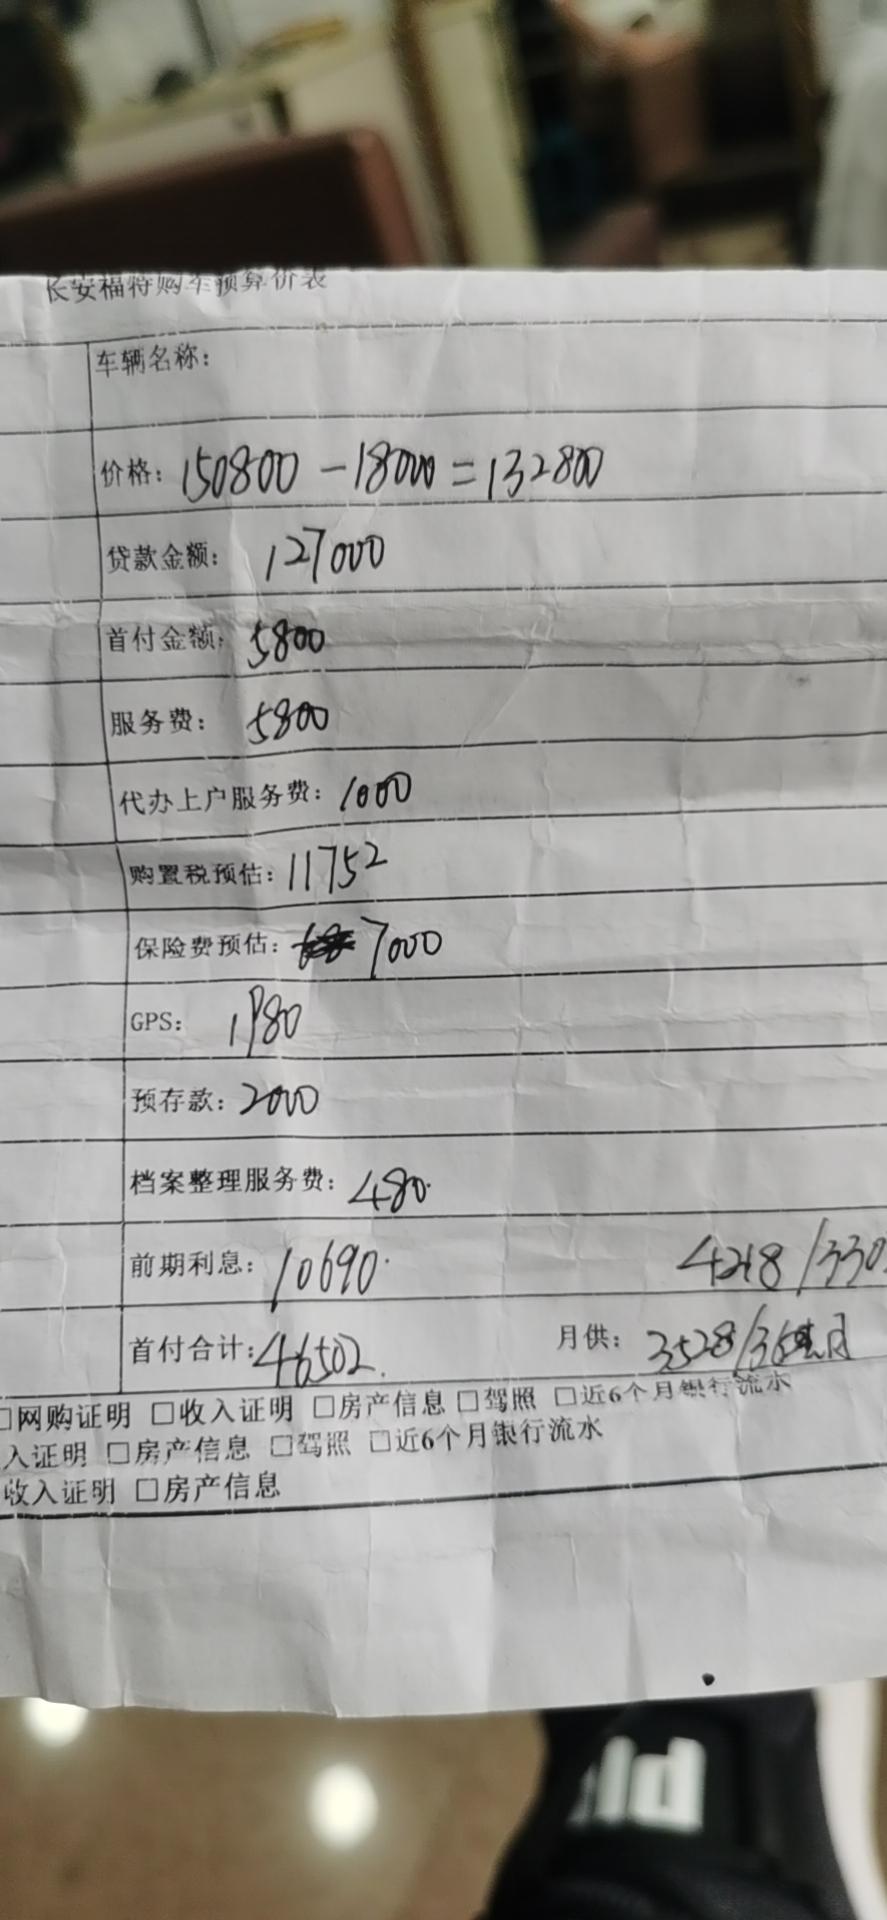 长安福特购车预算价表
车辆名称：
价格：150800-18000=132800
贷款金额：127000
首付金额：5800
服务费：5800
代办上户服务费：1000
购置税预估：11752
保险费预估：7000
GPS：1980
预存款：2000
档案整理服务费：480.
前期利息：10690. 4218/330
首付合计：46502. 月供：3528/36 月
□网购证明 □收入证明 □房产信息 □驾照 □近6个月银行流水
入证明 □房产信息 □驾照 □近6个月银行流水
收入证明 □房产信息
ld